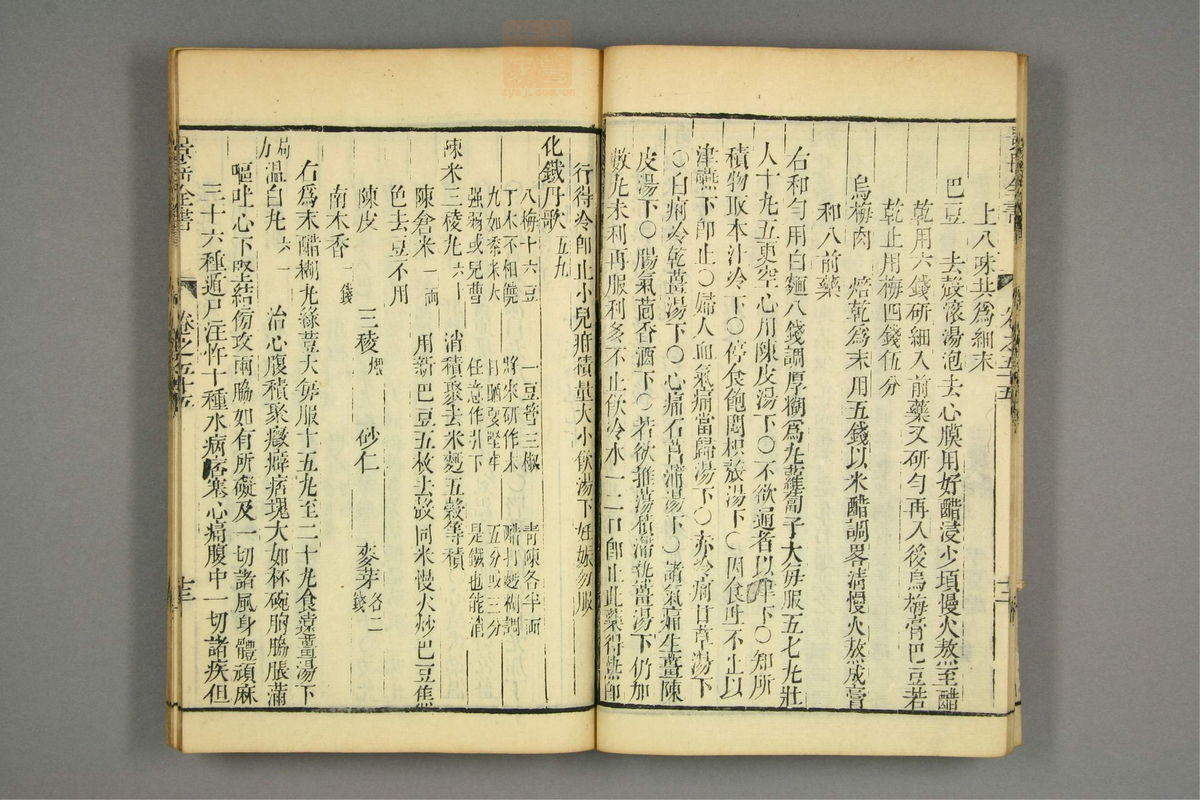 上八味共爲細末
巴豆 去殼滾湯泡去心膜用好醋浸少頃慢火熬至醋
乾用六錢研細入前藥又研勻再入後烏梅膏巴豆若
乾止用梅四錢伍分
烏梅肉 焙乾爲末用五錢以米醋調畧清慢火熬成膏
和入前藥
右和勻用白麵八錢調厚糊爲丸蘿蔔子大每服五七丸壯
人十丸五更空心用陳皮湯下○不欲通者以津下○知所
積物取本汁冷下○停食飽悶枳殼湯下○因食吐不止以
津嚥下即止○婦人血氣痛當歸湯下○赤冷痢甘草湯下
○白痢冷乾薑湯下○心痛石菖蒲湯下○諸氣痛生薑陳
皮湯下○腸氣茴香酒下○若欲推蕩積滯熱薑湯下仍加
數丸未利再服利多不止飲冷水一二口即止此藥得熱即
行得冷即止小兒疳積量大小飲湯下妊娠勿服
化鐵丹歌 五九
八梅十六豆 一豆管三椒 青陳各半兩
丁木不相饒 將來研作末 醋打麵糊調
九如黍米大 日晒要堅牢 五分或三分
強弱或兒曹 任意作引下 是鐵也能消
陳米三稜丸 六十 消積聚去米麵五穀等積
陳倉米 一兩 用新巴豆五枚去殼同米慢火炒巴豆焦
色去豆不用
陳皮 三稜 煨 砂仁 麥芽 各二錢
南木香 一錢
右爲末醋糊丸綠荳大每服十五丸至二十丸食遠薑湯下
局方溫白丸 六一 治心腹積聚癥癖痞塊大如杯碗胸脇脹滿
嘔吐心下堅結傍攻兩脇如有所礙及一切諸風身體頑麻
三十六種遁尸注忤十種水病痞塞心痛腹中一切諸疾但
景岳全書
卷之五十五
十三